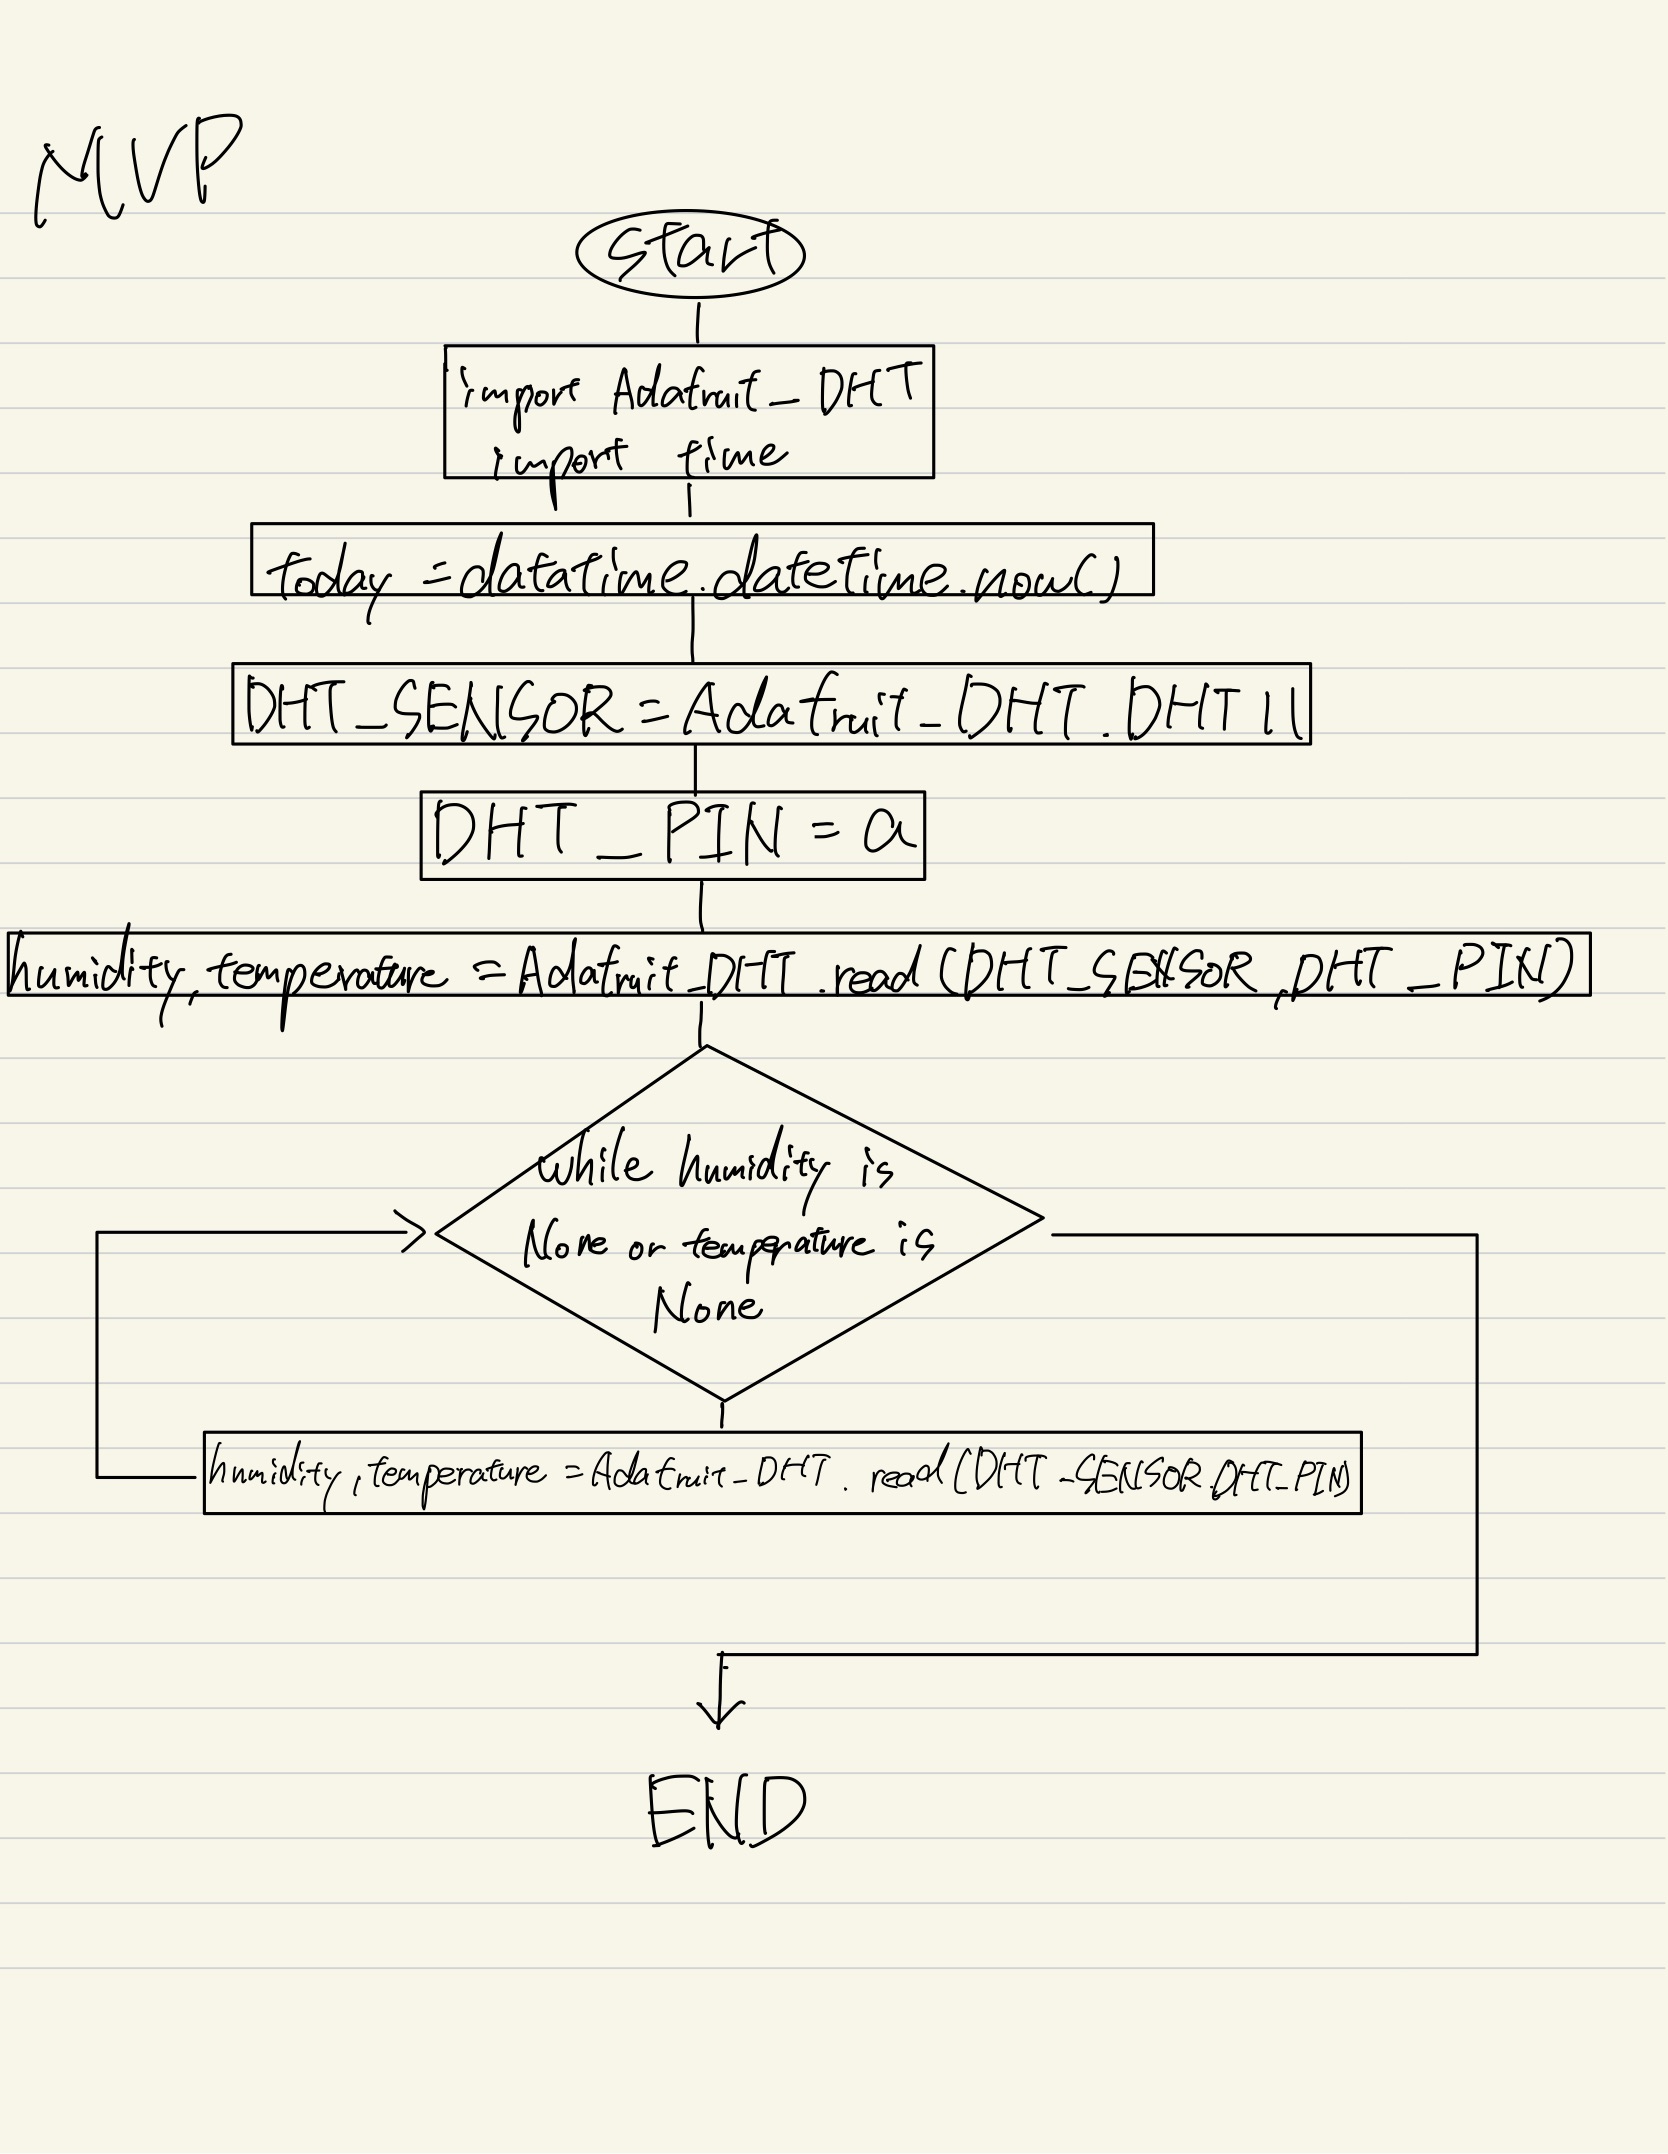 MVP
start
import Adafruit_DHT
import time
today = datatime.datetime.now()
DHT_SENSOR = Adafruit_DHT.DHT11
DHT_PIN = a
humidity, temperature = Adafruit_DHT.read(DHT_SENSOR, DHT_PIN)
while humidity is
None or temperature is
None
humidity, temperature = Adafruit_DHT. read(DHT_SENSOR.DHT_PIN)
END